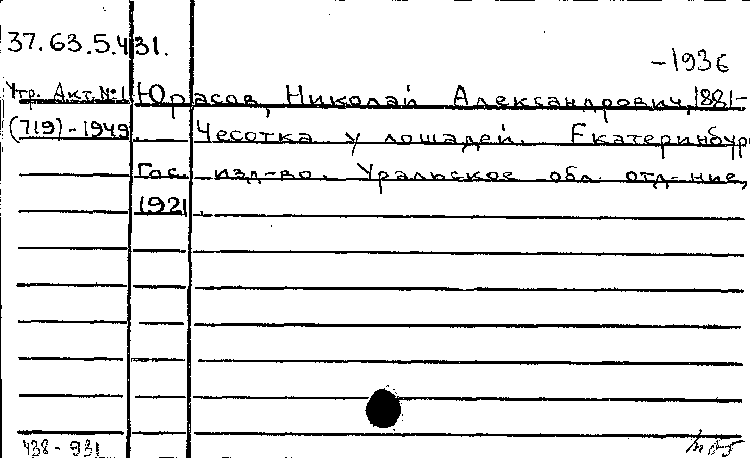 37.63.5.431.
-1936
Утр. Акт. №1 Юрасов, Николай Александрович, 1881-
(719)-1949 Чесотка у лошадей. Екатеринбур
Гос. изд-во. Уральское обл. отд-ние,
1921.
438-931